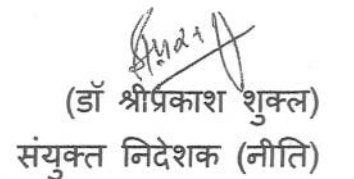 (डॉ श्रीप्रकाश शुक्ल)
संयुक्त निदेशक (नीति)